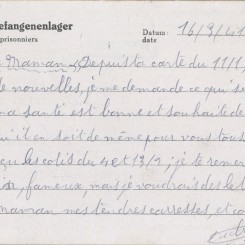 efangenenlager
prisonniers
Datum:
date
16/3/41
Maman, Depuis ta carte du 11/1,
de nouvelles, je me demande ce qui se
ma santé est bonne et souhaite de
qu'il en soit de même pour vous tous
eçu les colis du 4 et 13/2; je te remer
fameux, mais je voudrais des let
maman mes tendres caresses, et co